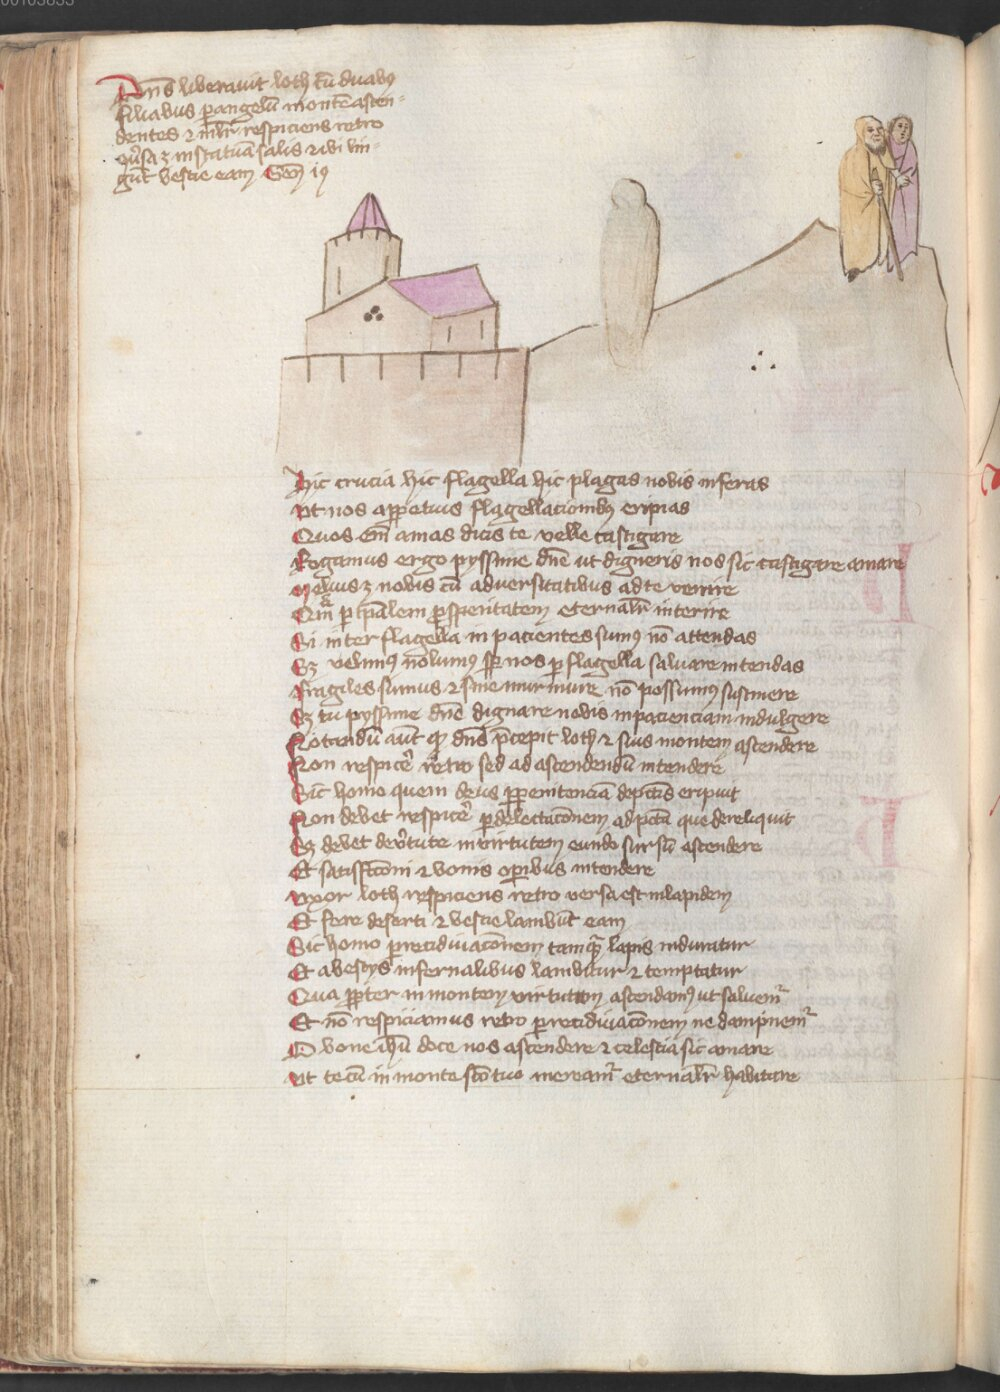 00103835
Dns liberavit loth cu duabus
filiabus p angelu monte ascen-
dentes & mlr respiciens retro
versa & in statua salis & ibi lin-
gut bestie eam Gen 19
Hic crucia hic flagella hic plagas nobis inferas
Ut nos a ppetuis flagellacionibus eripias
Quos em amas dicis te velle castigare
Rogamus ergo pyssime dne ut digneris nos sic castigare amare
Melius z nobis cu adversitatibus ad te venire
Qm p tpalem psperitatem eternalr interire
Si inter flagella inpacientes sumus no attendas
Sz velimus nolumus sp nos p flagella salvare intendas
Fragiles sumus & sine murmure no possumus sustinere
Sz tu pyssime dne dignare nobis inpacienciam indulgere
Notandu aut q dns pcepit loth & suis montem ascendere
Non respicere retro sed ad ascendendu intendere
Sic homo quem deus p penitencia de pctis eripuit
Non debet respicere p delectaconem ad pcta que dereliquit
Sz debet de vtute in virtutem eundo sursu ascendere
Et satisfcconi & bonis opibus intendere
Uxor loth respiciens retro versa est in lapidem
Et fere deserti & bestie lambut eam
Sic homo p recidivaconem tamqua lapis induratur
Et a bestys infernalibus lambitur & temptatur
Qua ppter in montem virtutum ascendamus ut salvemr
Et no respiciamus retro p recidivaconem ne dampnemr
O bone ihu doce nos ascendere & celestia sic amare
Ut tecu in monte sco tuo mereamr eternalr habitare